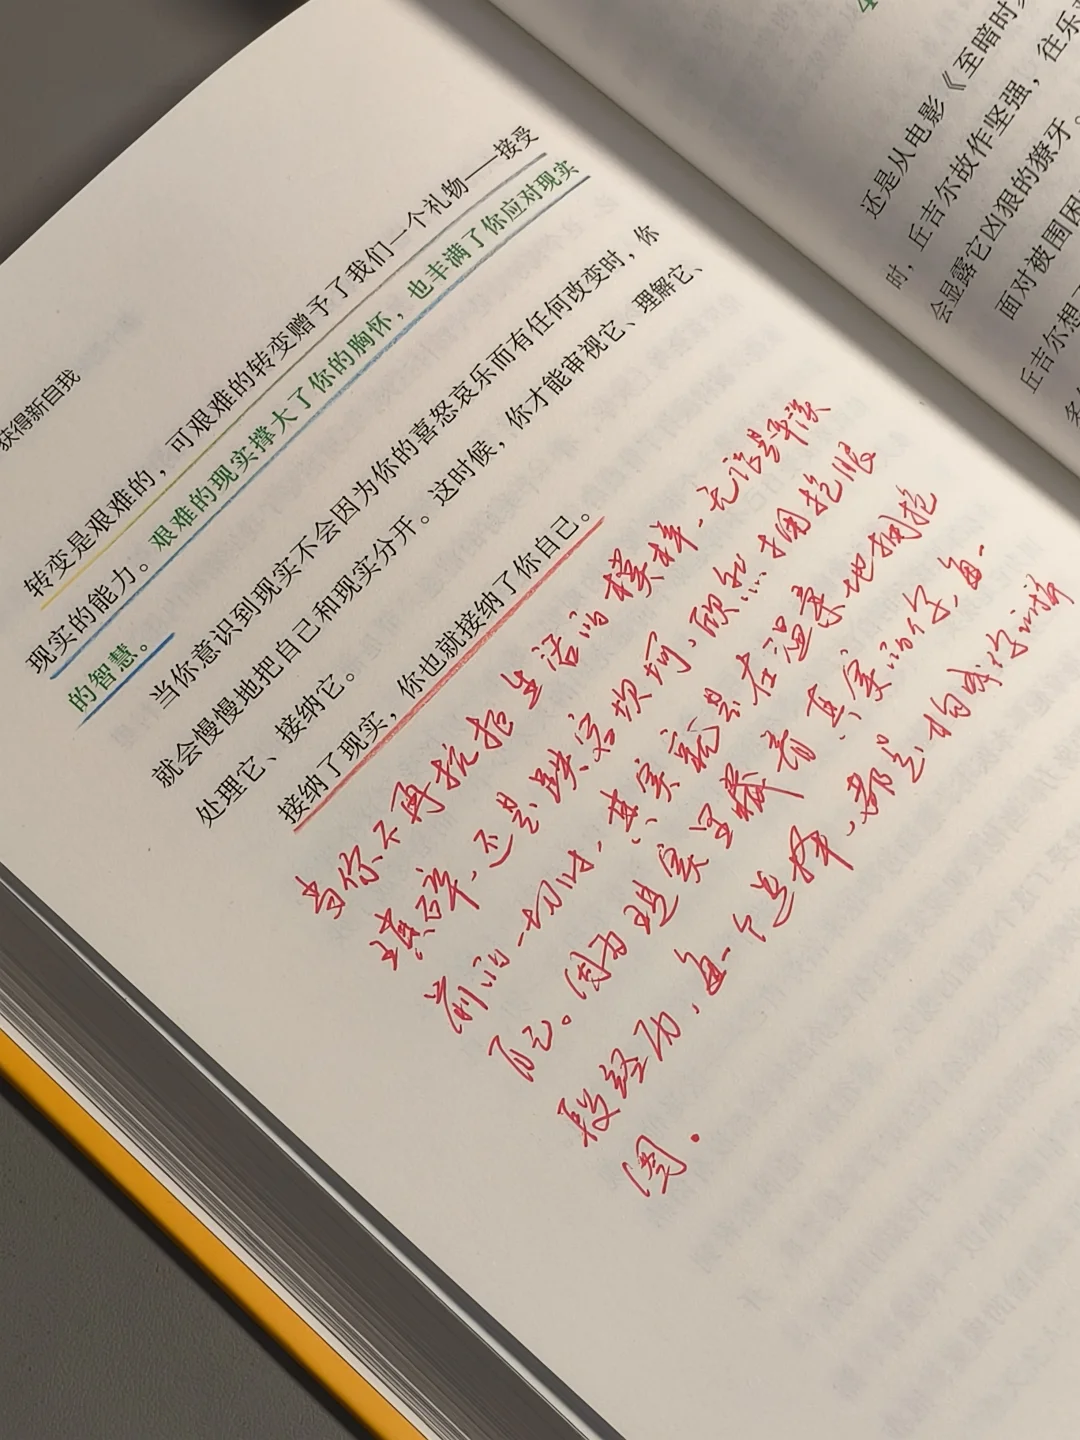 获得新自我
转变是艰难的，可艰难的转变赠予了我们一个礼物——接受
现实的能力。艰难的现实撑大了你的胸怀，也丰满了你应对现实
的智慧。
当你意识到现实不会因为你的喜怒哀乐而有任何改变时，你
就会慢慢地把自己和现实分开。这时候，你才能审视它、理解它、
处理它、接纳它。
接纳了现实，你也就接纳了你自己。
当你不再抗拒生活的模样，无论是平淡
琐碎，还是跌宕坎坷，欣然拥抱眼
前的一切时，其实就是在温柔地拥抱
自己。因为现实里藏着真实的你，每一
段经历，每一个选择，都是构成你的拼
图.
4
还是从电影《至暗时
时，丘吉尔故作坚强，往乐
会显露它凶狠的獠牙。
面对被围困
丘吉尔想